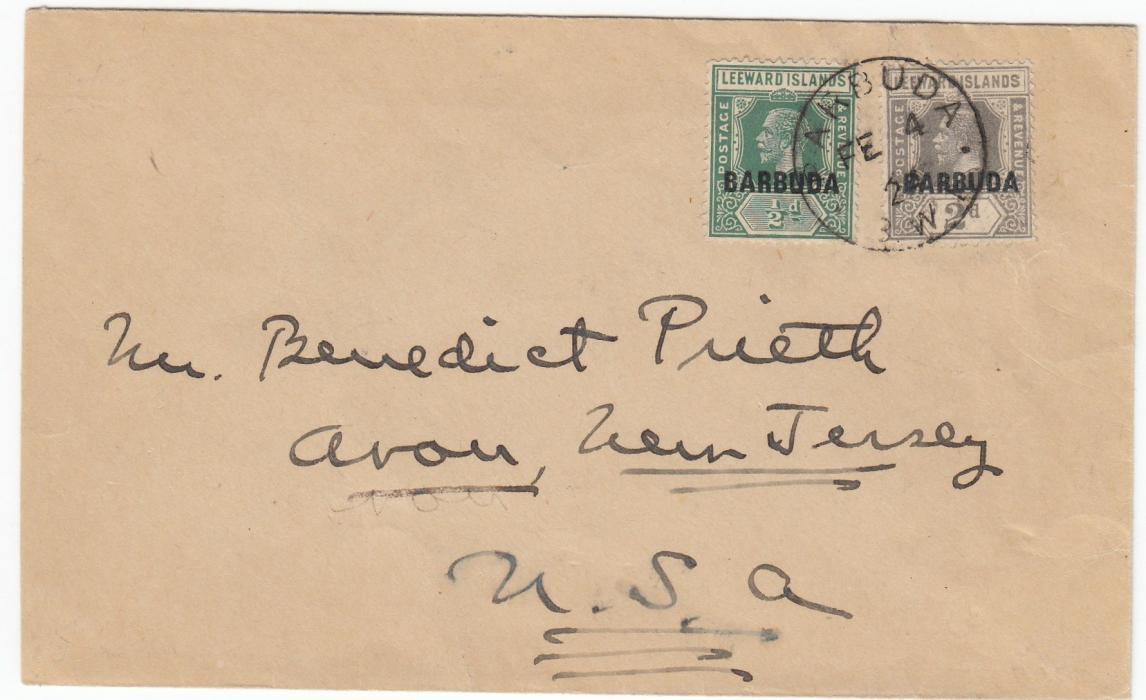 LEEWARD ISLANDS
POSTAGE & REVENUE
BARBUDA
½d
LEEWARD ISLANDS
POSTAGE & REVENUE
BARBUDA
2d
BARBUDA
FE 4
B W
Mr. Benedict Prieth
Avon, New Jersey
U.S.A